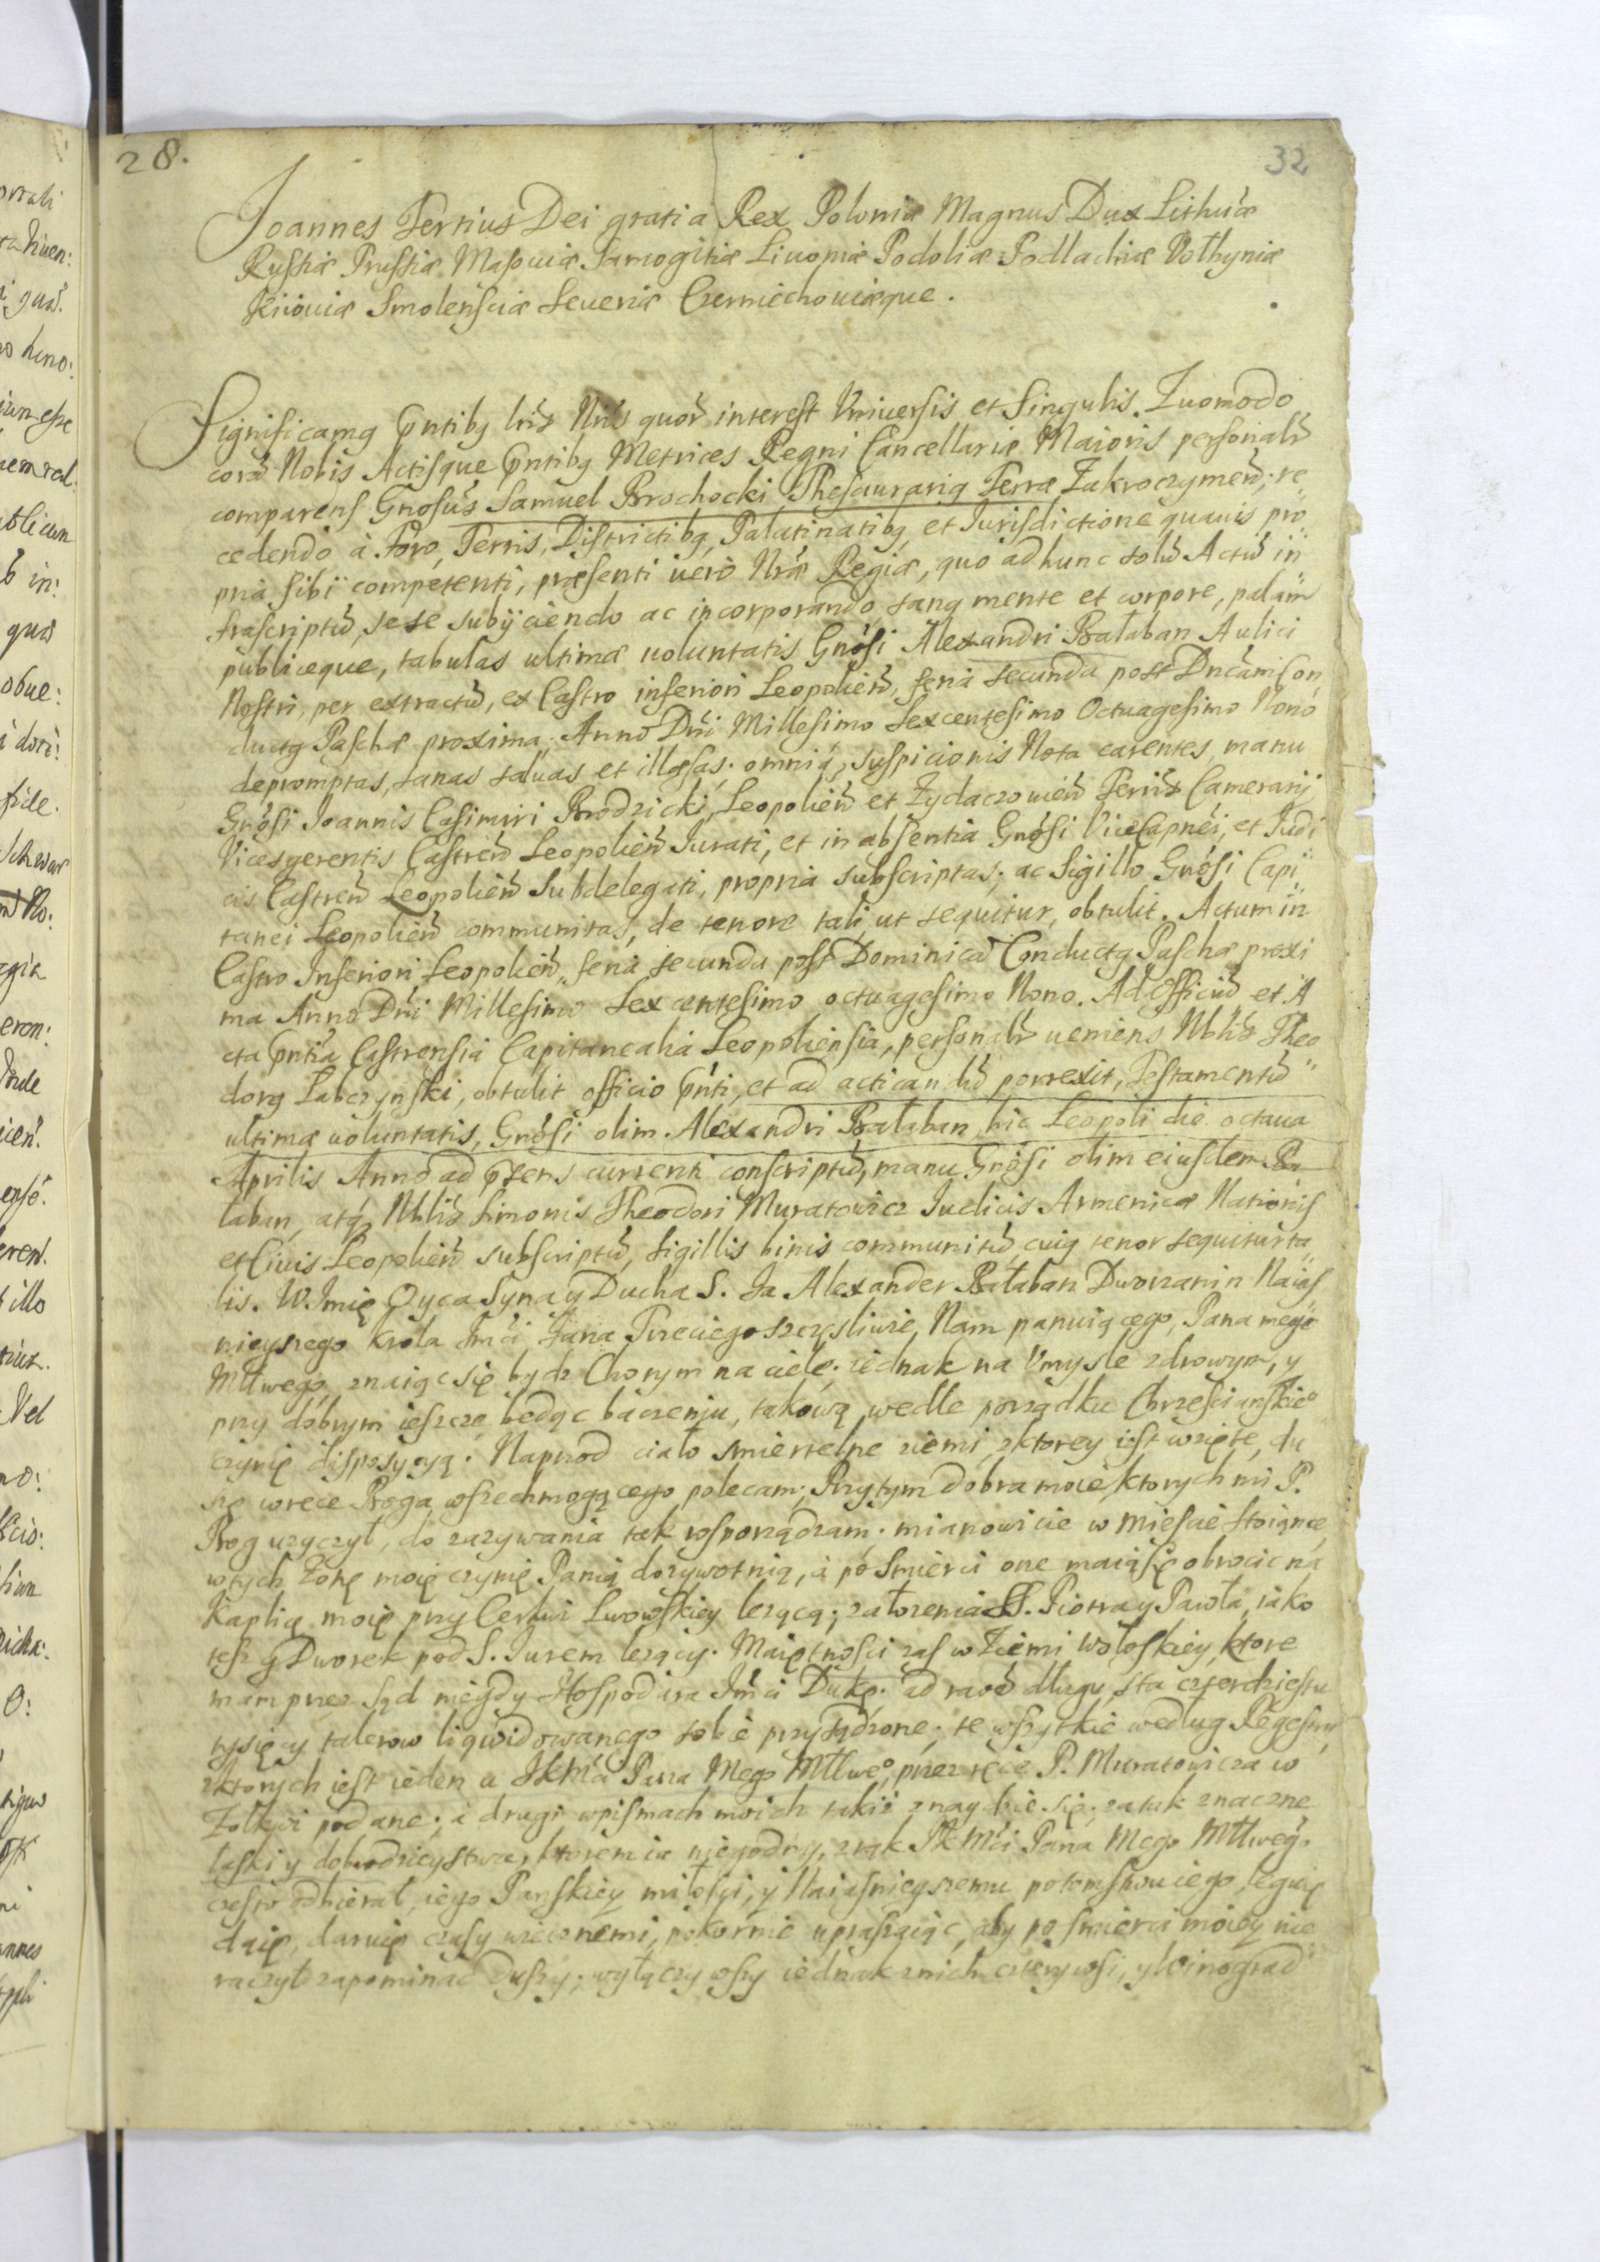 28.
32
Joannes Tertius Dei gratia Rex Poloniæ Magnus Dux Lithuæ
Russiæ Prussiæ Masouiæ Samogitiæ Liuoniæ Podoliæ Podlachiæ Volhyniæ
Kiiouiæ Smolensciæ Seueriæ Czerniechouiæque.
Significamq Pntibq lris Nris quor interest Vniuersis et Singulis. Quomodo
cora Nobis Actisque Pntibq Metrices Regni Cancellariæ Maioris personalr
comparens Gnosus Samuel Prochocki Thesaurariq Terræ Zakroczymen, re
cedendo à Foro, Terris, Districtibq, Palatinatibq et Iurisdictione quauis pro
pria sibi competenti, præsenti uero Nræ Regiæ, quo ad hunc solu Actu in
frascriptu, sese subijciendo ac incorporando, sanq mente et corpore, palam
publiceque, tabulas ultimæ uoluntatis Gnosi Alexandri Bałaban Aulici
Nostri, per extractu, ex Castro inferiori Leopolien, feria secunda post Dncam Con
ductq Paschæ proxima, Anno Dni Millesimo Sexcentesimo Octuagesimo Nono
depromptas, sanas saluas et illæsas, omniq suspicionis Nota carentes, manu
Gnosi Joannis Casimiri Brodzicki, Leopolien et Zydaczouien Terris Camerarij
Vicesgerentis Castren Leopolien Iurati, et in absentia Gnosi ViceCapnei, et Iudi
cis Castren Leopolien Subdelegati, propria subscriptas, ac Sigillo Gnosi Capi
tanei Leopolien communitas, de tenore tali, ut sequitur, obtulit. Actum in
Castro Inferiori Leopolien, feria secunda post Dominica Conductq Paschæ proxi
ma Anno Dni Millesimo Sexcentesimo octuagesimo Nono. Ad Officiu et A
cta Pntia Castrensia Capitanealia Leopoliensia, personalr ueniens Nblis Theo
dorq Labczynski, obtulit officio Pnti, et ad acticandu porrexit, Testamentu
ultimæ uoluntatis, Gnosi olim Alexandri Bałaban, hic Leopoli die octaua
Aprilis Anno ad Psens currenti conscriptu, manu Gnosi olim eiusdem Ba
łaban, atq Nblis Simonis Theodori Muratowicz Iudicis Armenicæ Nationis
et Ciuis Leopolien subscriptu, sigillis binis communitu, cuiq tenor sequitur ta
lis. W Imię Oyca Syna y Ducha S. Ja Alexander Bałaban Dworzanin Naias
nieyszego Krola Jmci Jana Trzeciego szczęsliwie, Nam panuiącego, Pana mego
Młłwego, znaiąc się bydz Chorym na ciele, iednak na Vmysle zdrowym, y
przy dobrym ieszcze będąc baczeniu, takową wedle porządku Chrzescianskieo
czynię dispozycyą. Naprzod ciało smiertelne ziemi, z ktorey iest wzięte, du
szę w ręce Boga wszechmogącego polecam; Przytym dobra moie, ktorych mi P.
Bog uzyczył, do zazywania tak rosporządzam; mianowicie w miescie stoiące
w tych Zonę moię czynię Panią dozywotnią, a po smierci one maią się obrocic na
Kaplię moię przy Cerkwi Lwowskiey lezącą, załozenia SS. Piotra y Pawła, iako
tesz y Dworek pod S. Iurem lezący. Maiętnosci zas w Ziemi Wołoskiey, ktore
mam przez sąd niegdy Hospodara Jmci Dukę, ad długu sta czterdziestu
tysięcy talerow liqwidowanego sobie przysądzone, te wszytkie według Regestru
z ktorych iest ieden u JKMci Pana Mego Młłweo, przez ręce P. Muratowicza w
Zołkwi podane, a drugi w pismach moich takiz znaydzie się, za tak znaczne
łaski y dobrodzieystwa, ktorem ia niegodny, z rąk JKMci Pana Mego Młłwego
często odbierał, iego Panskiey miłosci, y Naiasnieyszemu potomstwu iego, leguię
daię, daruię czasy wiecznemi, pokornie upraszaiąc, aby po smierci moiey nie
raczył zapominac Duszy; wyłączywszy iednak z nich cztery wsi, y Winograd